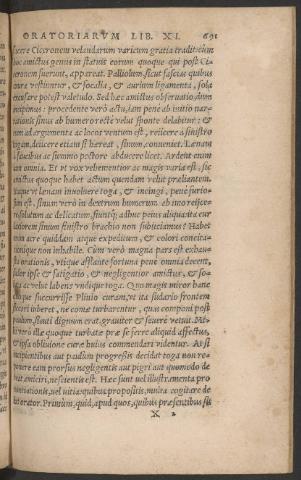 ORATORIARVM LIB. XI. 691
fuere Ciceronem velandarum varicum gratia traditũ cùm
hoc amictus genus in statuis eorum quoque qui post Ci-
ceronem fuerunt, appareat. Palliolum, sicut fascias quibus
crura vestiuntur, & focalia, & aurium ligamenta, sola
excusare potest valetudo. Sed hæc amictus obseruatio, dum
incipimus: procedente verò actu, iam penè ab initio nar-
rationis sinus ab humero rectè velut sponte delabitur: &
cum ad argumenta ac locos ventum est, reiicere à sinistro
togam, deiicere etiam si hæreat, sinum, conueniet. Læua
à faucibus ac summo pectore abducere licet. Ardent enim
iam omnia. Et vt vox vehementior ac magis varia est, sic
amictus quoque habet actum quendam velut præliantem.
Itaque vt læuam inuoluere toga, & incingi, penè furio-
sum est, sinum verò in dextrum humerum ab imo reiice-
re, solutum ac delicatum, fiuntq; adhuc peius aliqua: ita cur
laxiorem sinum sinistro brachio non subiiciamus? Habet
enim acre quiddam atque expeditum, & calori concita-
tionique non inhabile. Cùm verò magna pars est exhau-
sta orationis, vtique afflante fortuna penè omnia decent,
sudor ipse & fatigatio, & negligentior amictus, & so-
luta ac velut labens vndique toga. Quo magis miror hanc
quoque succurrisse Plinio curam, vt ita sudario frontem
siccari iuberet, ne comæ turbarentur, quas componi post
paulum, sicuti dignum erat, grauiter & seuerè vetuit. Mi-
hi verò illæ quoque turbatæ præ se ferre aliquid affectus,
& ipsa obliuione curæ huius commendari videntur. At si
incipientibus aut paulum progressis decidat toga non re-
ponere eam prorsus negligentis aut pigri aut quomodo de-
beat amiciri, nescientis est. Hæc sunt vel illustramenta pro
nuntiationis, vel vitia: quibus propositis, multa cogitare de
bet orator. Primùm, quis, apud quos, quibus præsentibus sit
X 2